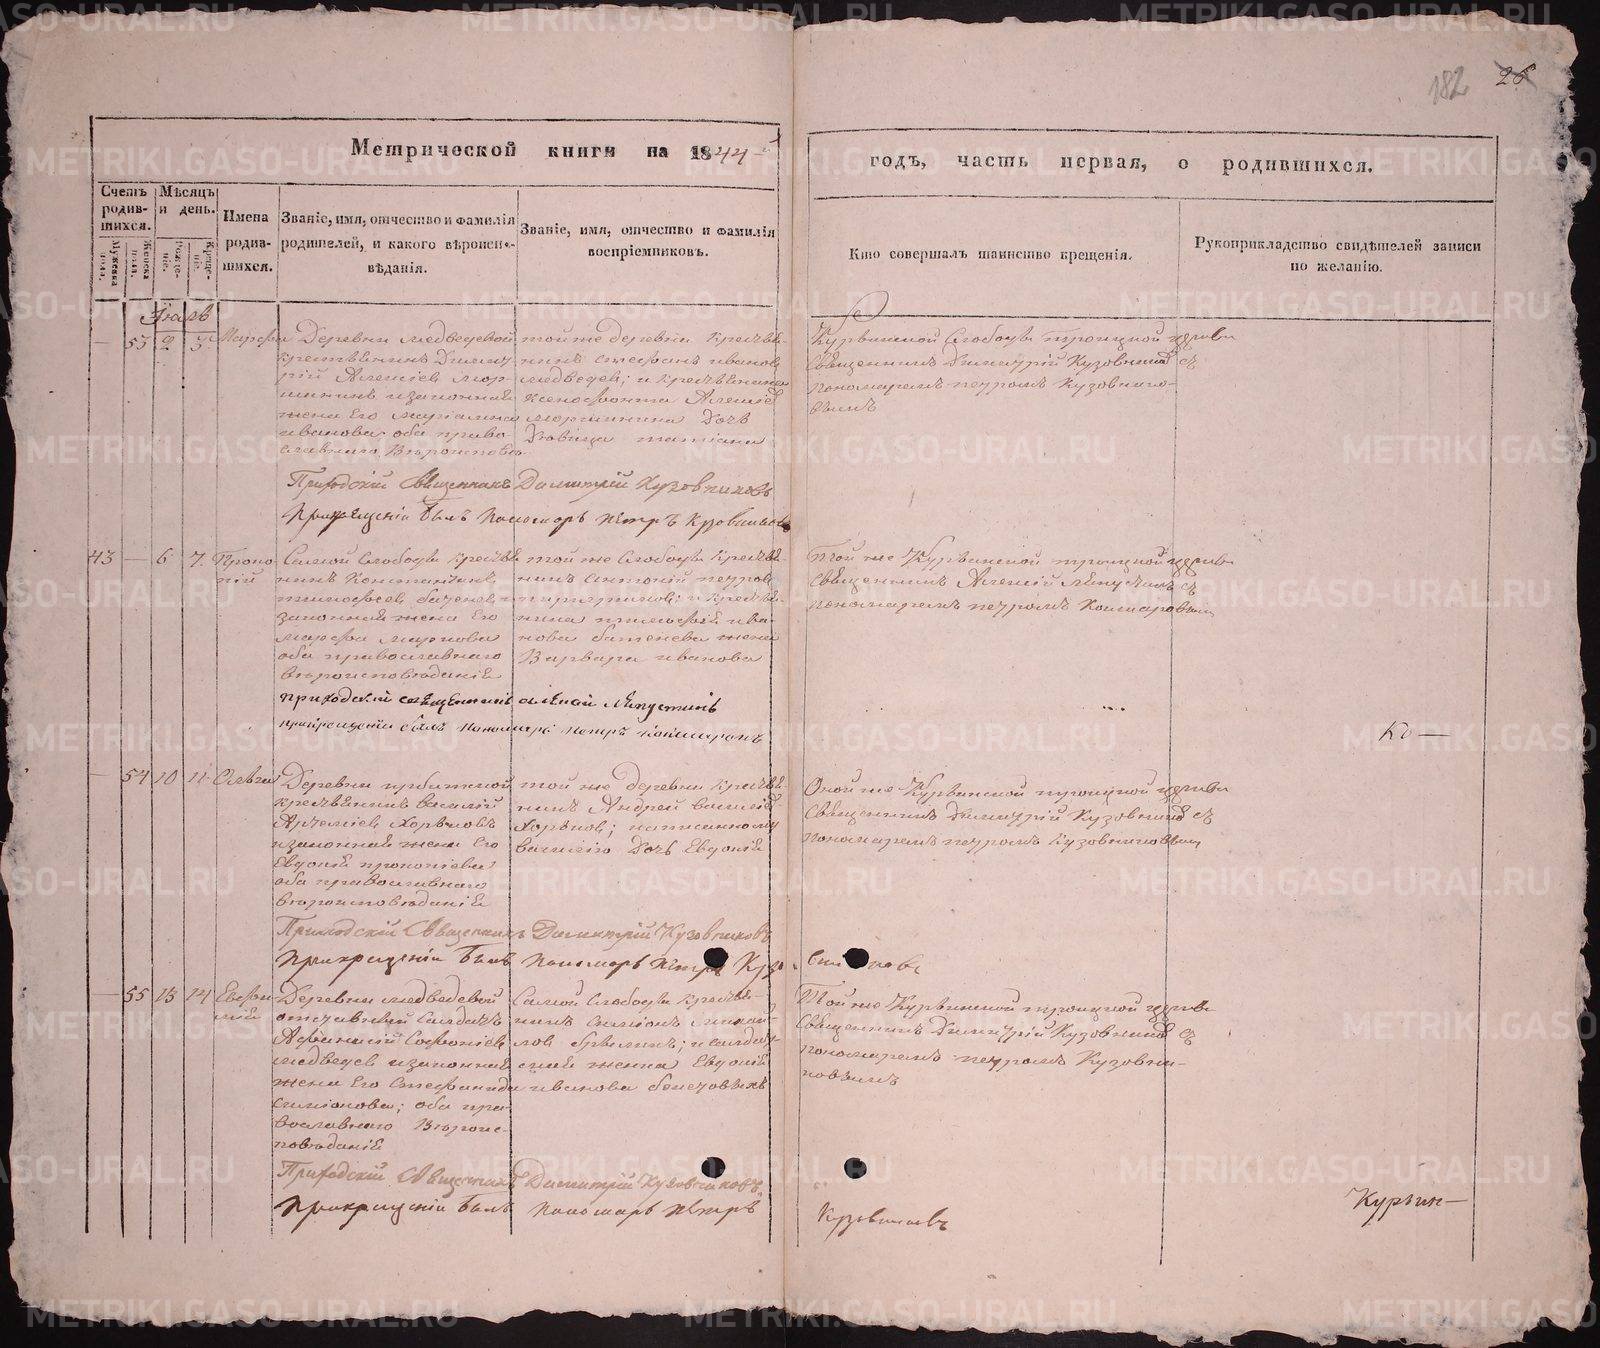 182 26
Метрической книги на 1844-й
годъ, часть первая, о родившихся.
Счетъ родившихся.
Мѣсяцъ и день.
Имена родившихся.
Званіе, имя, отчество и фамилія родителей, и какого вѣроисповѣданія.
Званіе, имя, отчество и фамилія воспріемниковъ.
Кто совершалъ таинство крещенія.
Рукоприкладство свидѣтелей записи по желанію.
Мужеска пола.
Женска пола.
Рожденіе.
Крещеніе.
Июль
53 2 3 Марѳа
Деревни Медведевой
крестьянинъ Димит-
рій Алексіев
и законная
жена Его
иванова оба право-
славнаго Вѣроисповѣ
той же деревни крестья-
нинъ Стефанъ иванов
медведев; и крестьянина
Ксенофонта Алексіев
дочь
Девица татіана
Слободы троицкой церкви
Священникъ Димитрій Кузовников съ
пономаремъ петромъ Кузовнико-
вымъ
Приходскій Священникъ Димитрій Кузовниковъ
При крещеніи былъ Пономарь Петръ Кузовниковъ
43 — 6 7 Проко
пій
Самой Слободы крестья
нинъ Константинъ
тимофеев
законная жена Его
марѳа маркова
оба православнаго
вѣроисповѣданіе
той же Слободы крестья-
нинъ Антоній петров
и крестья-
нина тимофей ива-
нова жена
Варвара иванова
Той же троицкой церкви
Священникъ Алексій Лепустинъ съ
пономаремъ петромъ Комаровым
приходскій священникъ алексій лепустинъ
при крещеніи былъ пономарь петръ комаровъ
Ко —
54 10 11 Ольга
Деревни
крестьянинъ василій
Артеміев Хорьковъ
и законная жена Его
Евдокія прокопіева
оба православнаго
вѣроисповѣданіе
той же деревни крестья-
нинъ Андрей василіев
Хорьков; написанному
василію дочь Евдокія
Оной же троицкой церкви
Священникъ Димитрій Кузовников съ
пономаремъ петромъ Кузовниковым
Приходскій Священникъ Димитрій Кузовниковъ
При крещеніи былъ Пономарь Петръ
55 13 14 Евфи
мія
Деревни медведевой
отставный Салдатъ
Афанасій Софоніев
медведев и законная
жена Его Стефанида
симіонова; оба пра-
вославнаго Вѣроис-
повѣданіе
Самой Слободы крестья-
нинъ Симіонъ михай-
лов и салдат-
ская женка Евдокія
иванова
Той же троицкой церкви
Священникъ Димитрій Кузовников съ
пономаремъ петромъ Кузовни-
ковымъ
Приходскій Священникъ Димитрій Кузовниковъ
При крещеніи былъ Пономарь Петръ
Кузовниковъ
METRIKI.GASO-URAL.RU